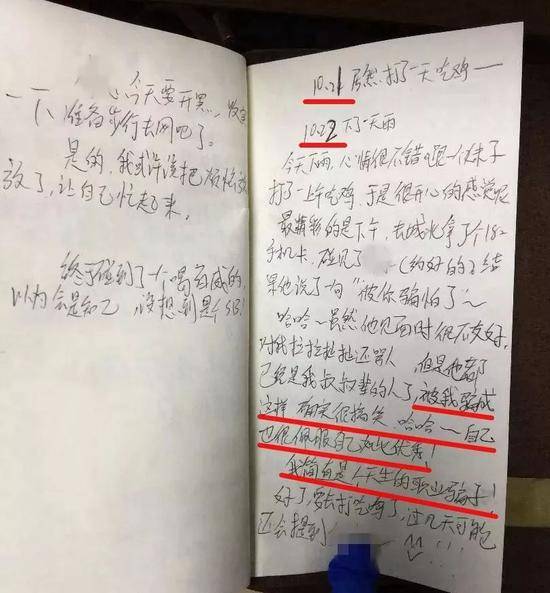 今天要开黑，收拾
一下，准备步行去网吧了。
是的，我或许该把烦恼
放了，让自己忙起来。
终于碰到了一个喝药威的，
以为会是知己，没想到是个SB！
10.21 居然打了一天吃鸡——
10.22 下了一天雨
今天下雨，心情很不错，跟一个妹子
打了一上午吃鸡，于是很开心的感觉呢
最精彩的是下午，去城北拿了个182
手机卡，碰见了 ——（约好的）结
果他说了句“被你骗怕了”～
哈哈～虽然他见面时很不友好，
对我拉拉扯扯还骂人 但是他都
已经是我叔叔辈的人了，被我骗成
这样 确实很搞笑 哈哈～自己
也很佩服自己如此优秀！
我简直是个天生的职业骗子！
好了，要去打吃鸡了，过几天可能
还会提到 ...